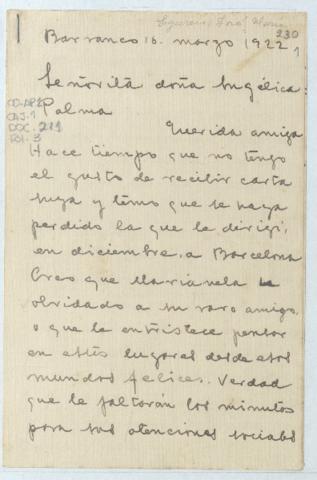 Eguren, José María
Barranco 16. marzo 1922
230
1
Señorita doña Angélica
Palma
CO-AP
CAJ. 1
DOC. 211
FOL. 3
Querida amiga
Hace tiempo que no tengo
el gusto de recibir carta
suya y temo que se haya
perdido la que le dirigí,
en diciembre, a Barcelona
Creo que Marianela ha
olvidado a su raro amigo,
o que le entristece pensar
en estos lugares desde esos
mundos felices. Verdad
que le faltarán los minutos
para sus atenciones sociales